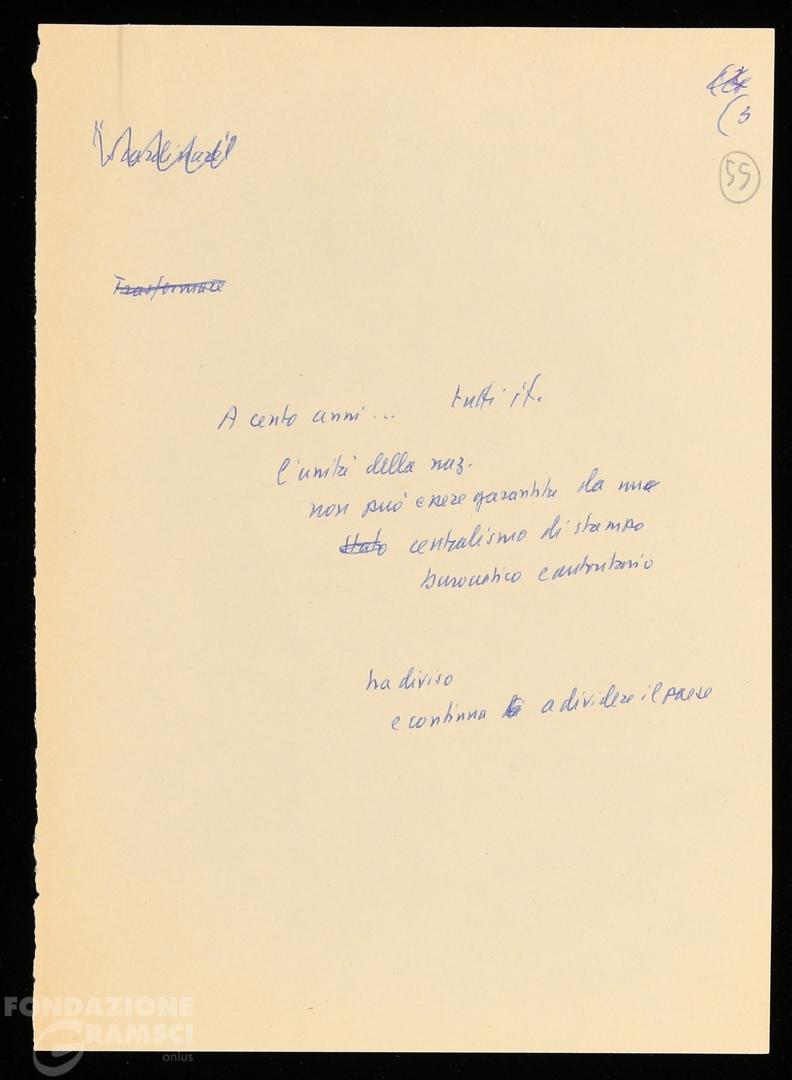 (3
55
"straordinaria"
Trasformare
A cento anni... tutti it.
l'unità della naz.
non può essere garantita da una
Stato centralismo di stampo
burocratico e autoritario
ha diviso
e continua a dividere il paese
FONDAZIONE
GRAMSCI
onlus